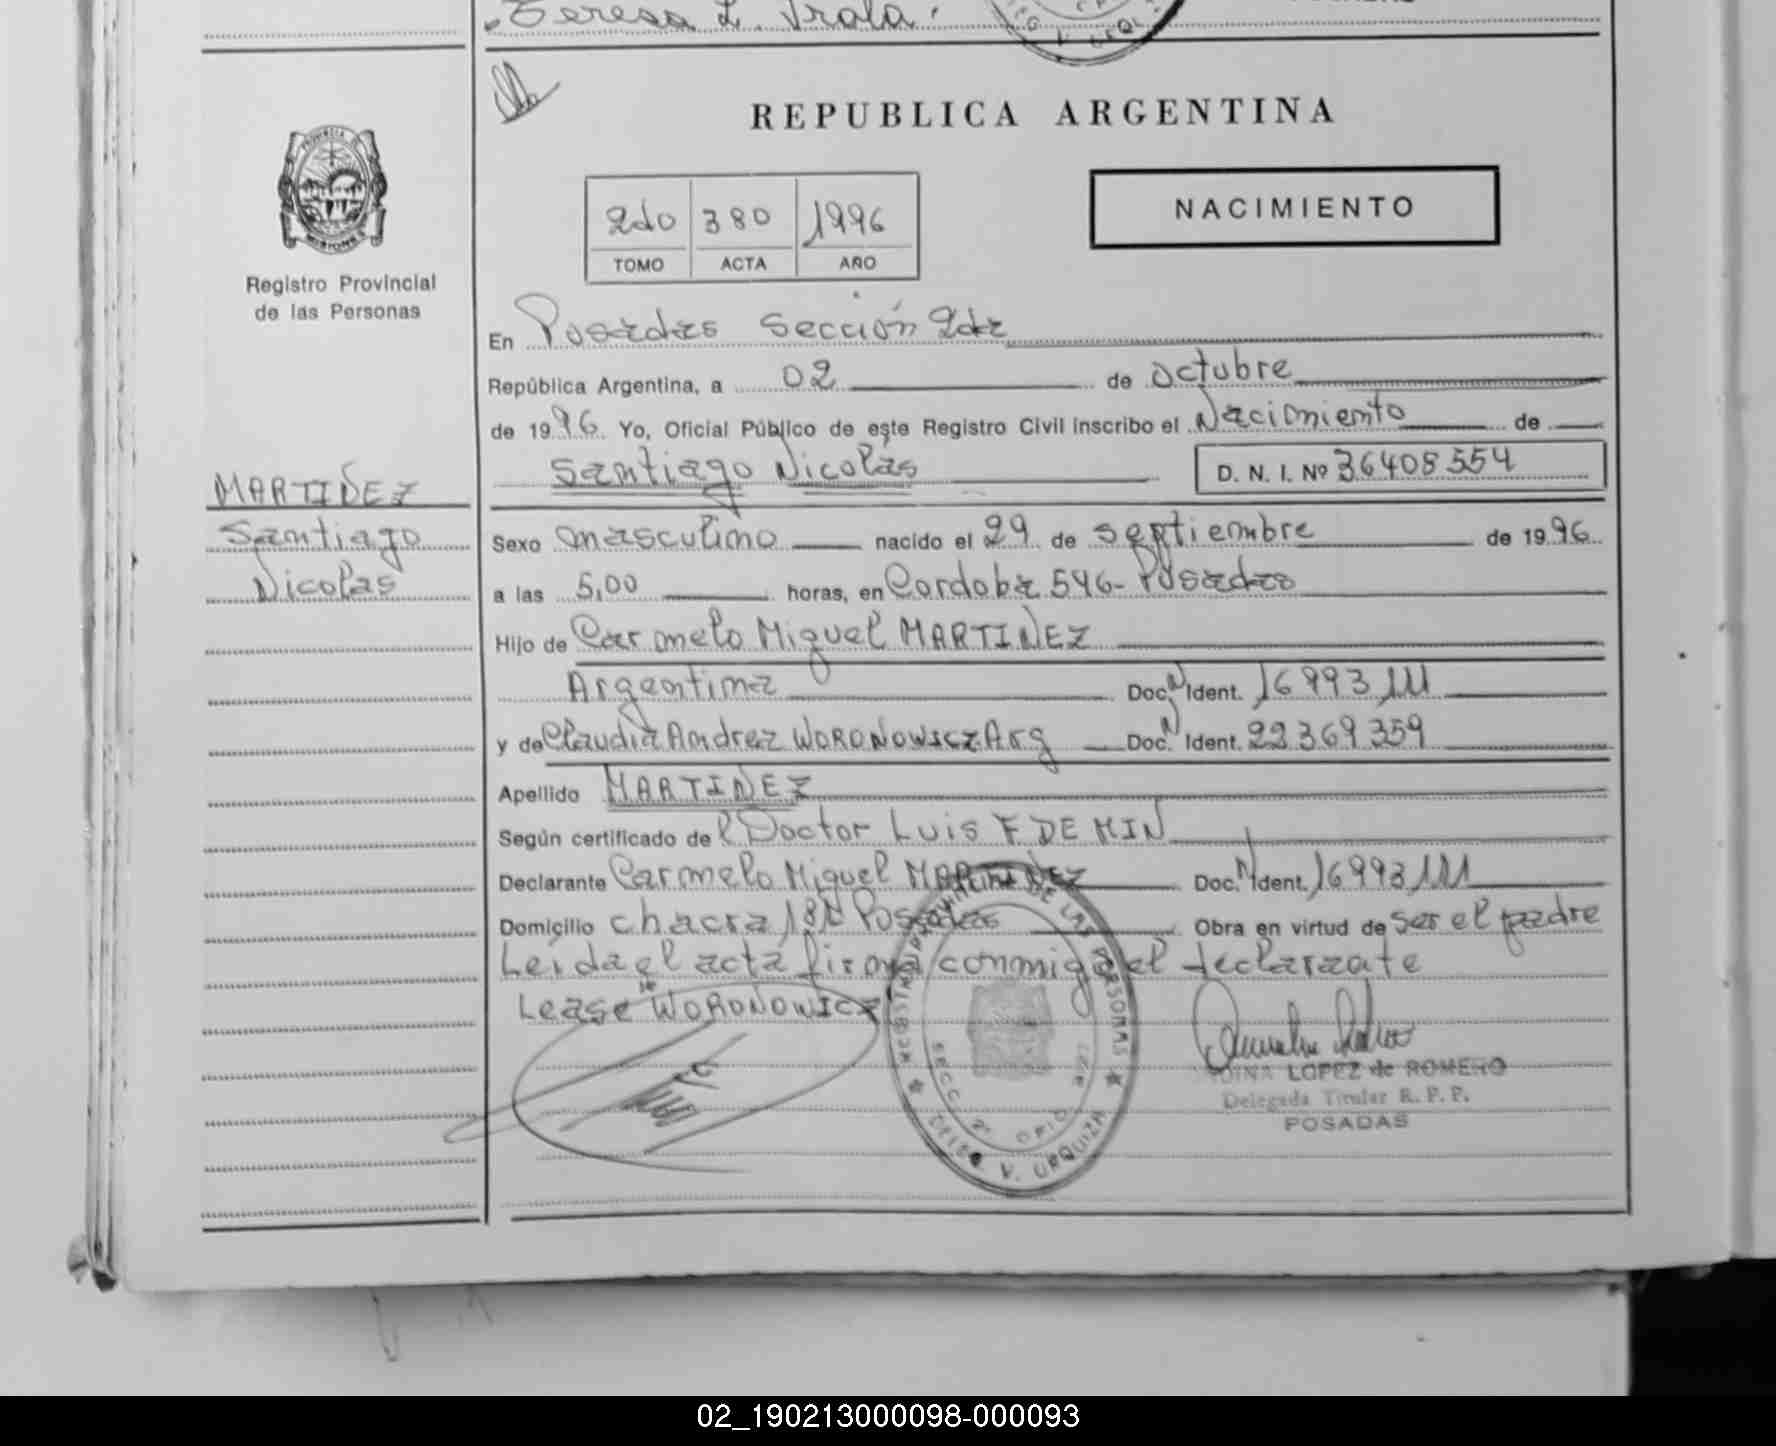 Teresa L.
REPUBLICA ARGENTINA
PROVINCIA
MISIONES
Registro Provincial
de las Personas
NACIMIENTO
2do 380 1996
TOMO ACTA AÑO
En Posadas Sección 2da
República Argentina, a 02 de octubre
de 1996 Yo, Oficial Público de este Registro Civil inscribo el Nacimiento de
Santiago Nicolás D. N. I. Nº 36408554
MARTINEZ
Santiago
Nicolas
Sexo masculino nacido el 29 de septiembre de 1996
a las 5,00 horas, en Cordoba 546- Posadas
Hijo de Carmelo Miguel MARTINEZ
Argentina Doc. N Ident. 16993111
y de Claudia Andrea WORONOWICZ Arg Doc. N Ident. 22369359
Apellido MARTINEZ
Según certificado del Doctor Luis F DE MIN
Declarante Carmelo Miguel MARTINEZ Doc. N Ident. 16993111
Domicilio chacra Posadas Obra en virtud de ser el padre
Leida el acta firma conmigo el declarante
Lease WORONOWICZ
REGISTRO PROVINCIAL DE LAS PERSONAS
SECC. 2ª
V. URQUIZA
LOPEZ de ROMERO
Delegada Titular R. P. P.
POSADAS
02_190213000098-000093